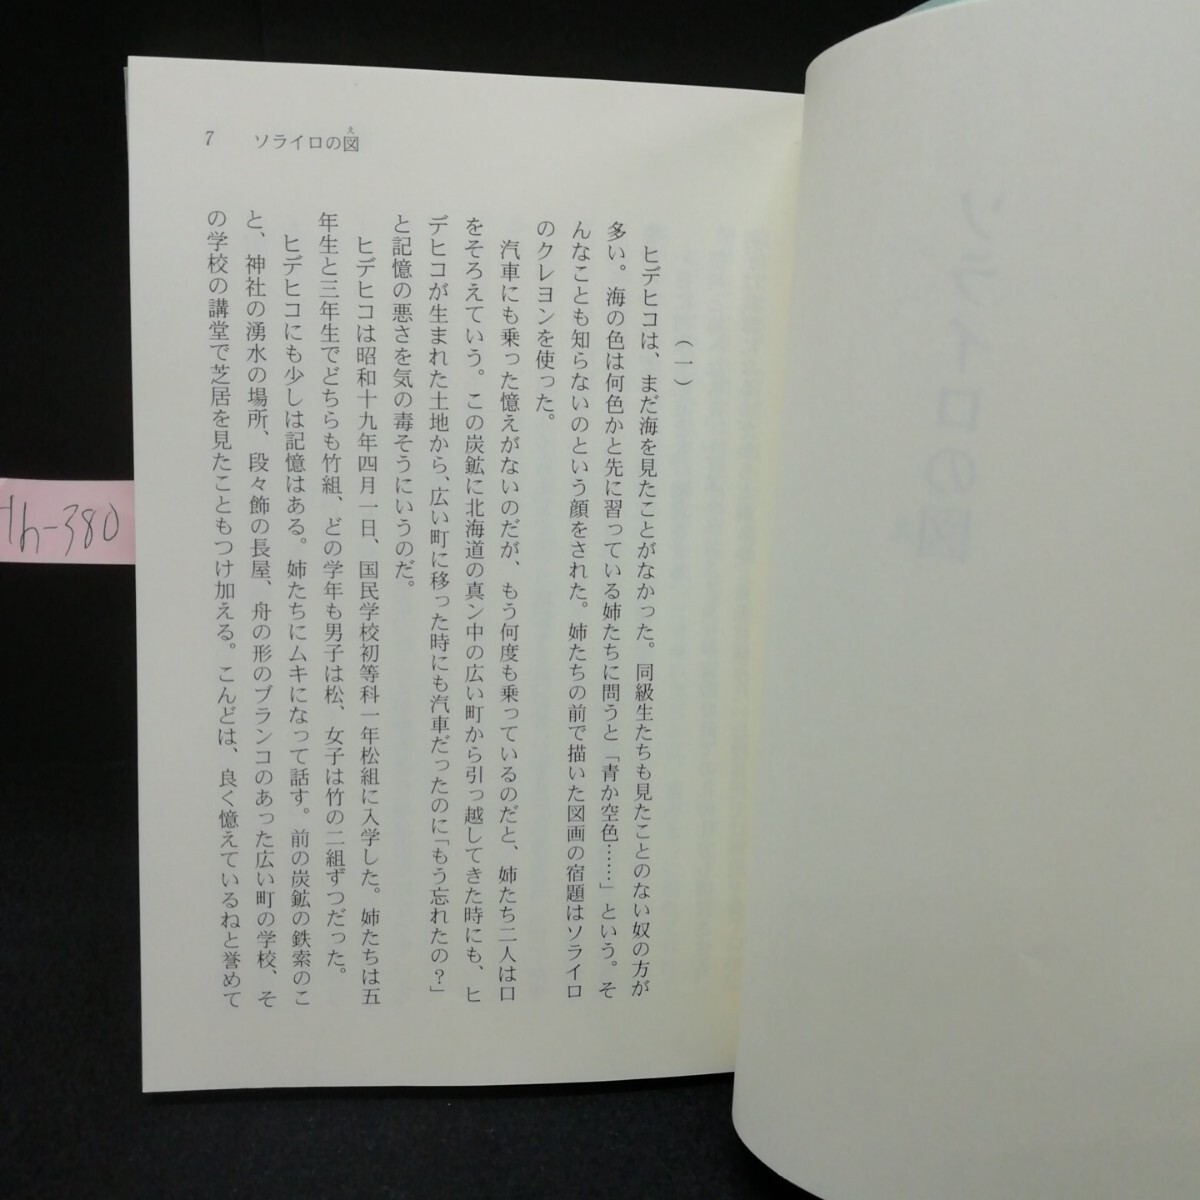 7
ソライロの図
え
（一）
ヒデヒコは、まだ海を見たことがなかった。同級生たちも見たことのない奴の方が
多い。海の色は何色かと先に習っている姉たちに問うと「青か空色……」という。そ
んなことも知らないのという顔をされた。姉たちの前で描いた図画の宿題はソライロ
のクレヨンを使った。
汽車にも乗った憶えがないのだが、もう何度も乗っているのだと、姉たち二人は口
をそろえていう。この炭鉱に北海道の真ン中の広い町から引っ越してきた時にも、ヒ
デヒコが生まれた土地から、広い町に移った時にも汽車だったのに「もう忘れたの？」
と記憶の悪さを気の毒そうにいうのだ。
ヒデヒコは昭和十九年四月一日、国民学校初等科一年松組に入学した。姉たちは五
年生と三年生でどちらも竹組、どの学年も男子は松、女子は竹の二組ずつだった。
ヒデヒコにも少しは記憶はある。姉たちにムキになって話す。前の炭鉱の鉄索のこ
と、神社の湧水の場所、段々飾の長屋、舟の形のブランコのあった広い町の学校、そ
の学校の講堂で芝居を見たこともつけ加える。こんどは、良く憶えているねと誉めて
ソライロの図
th-380